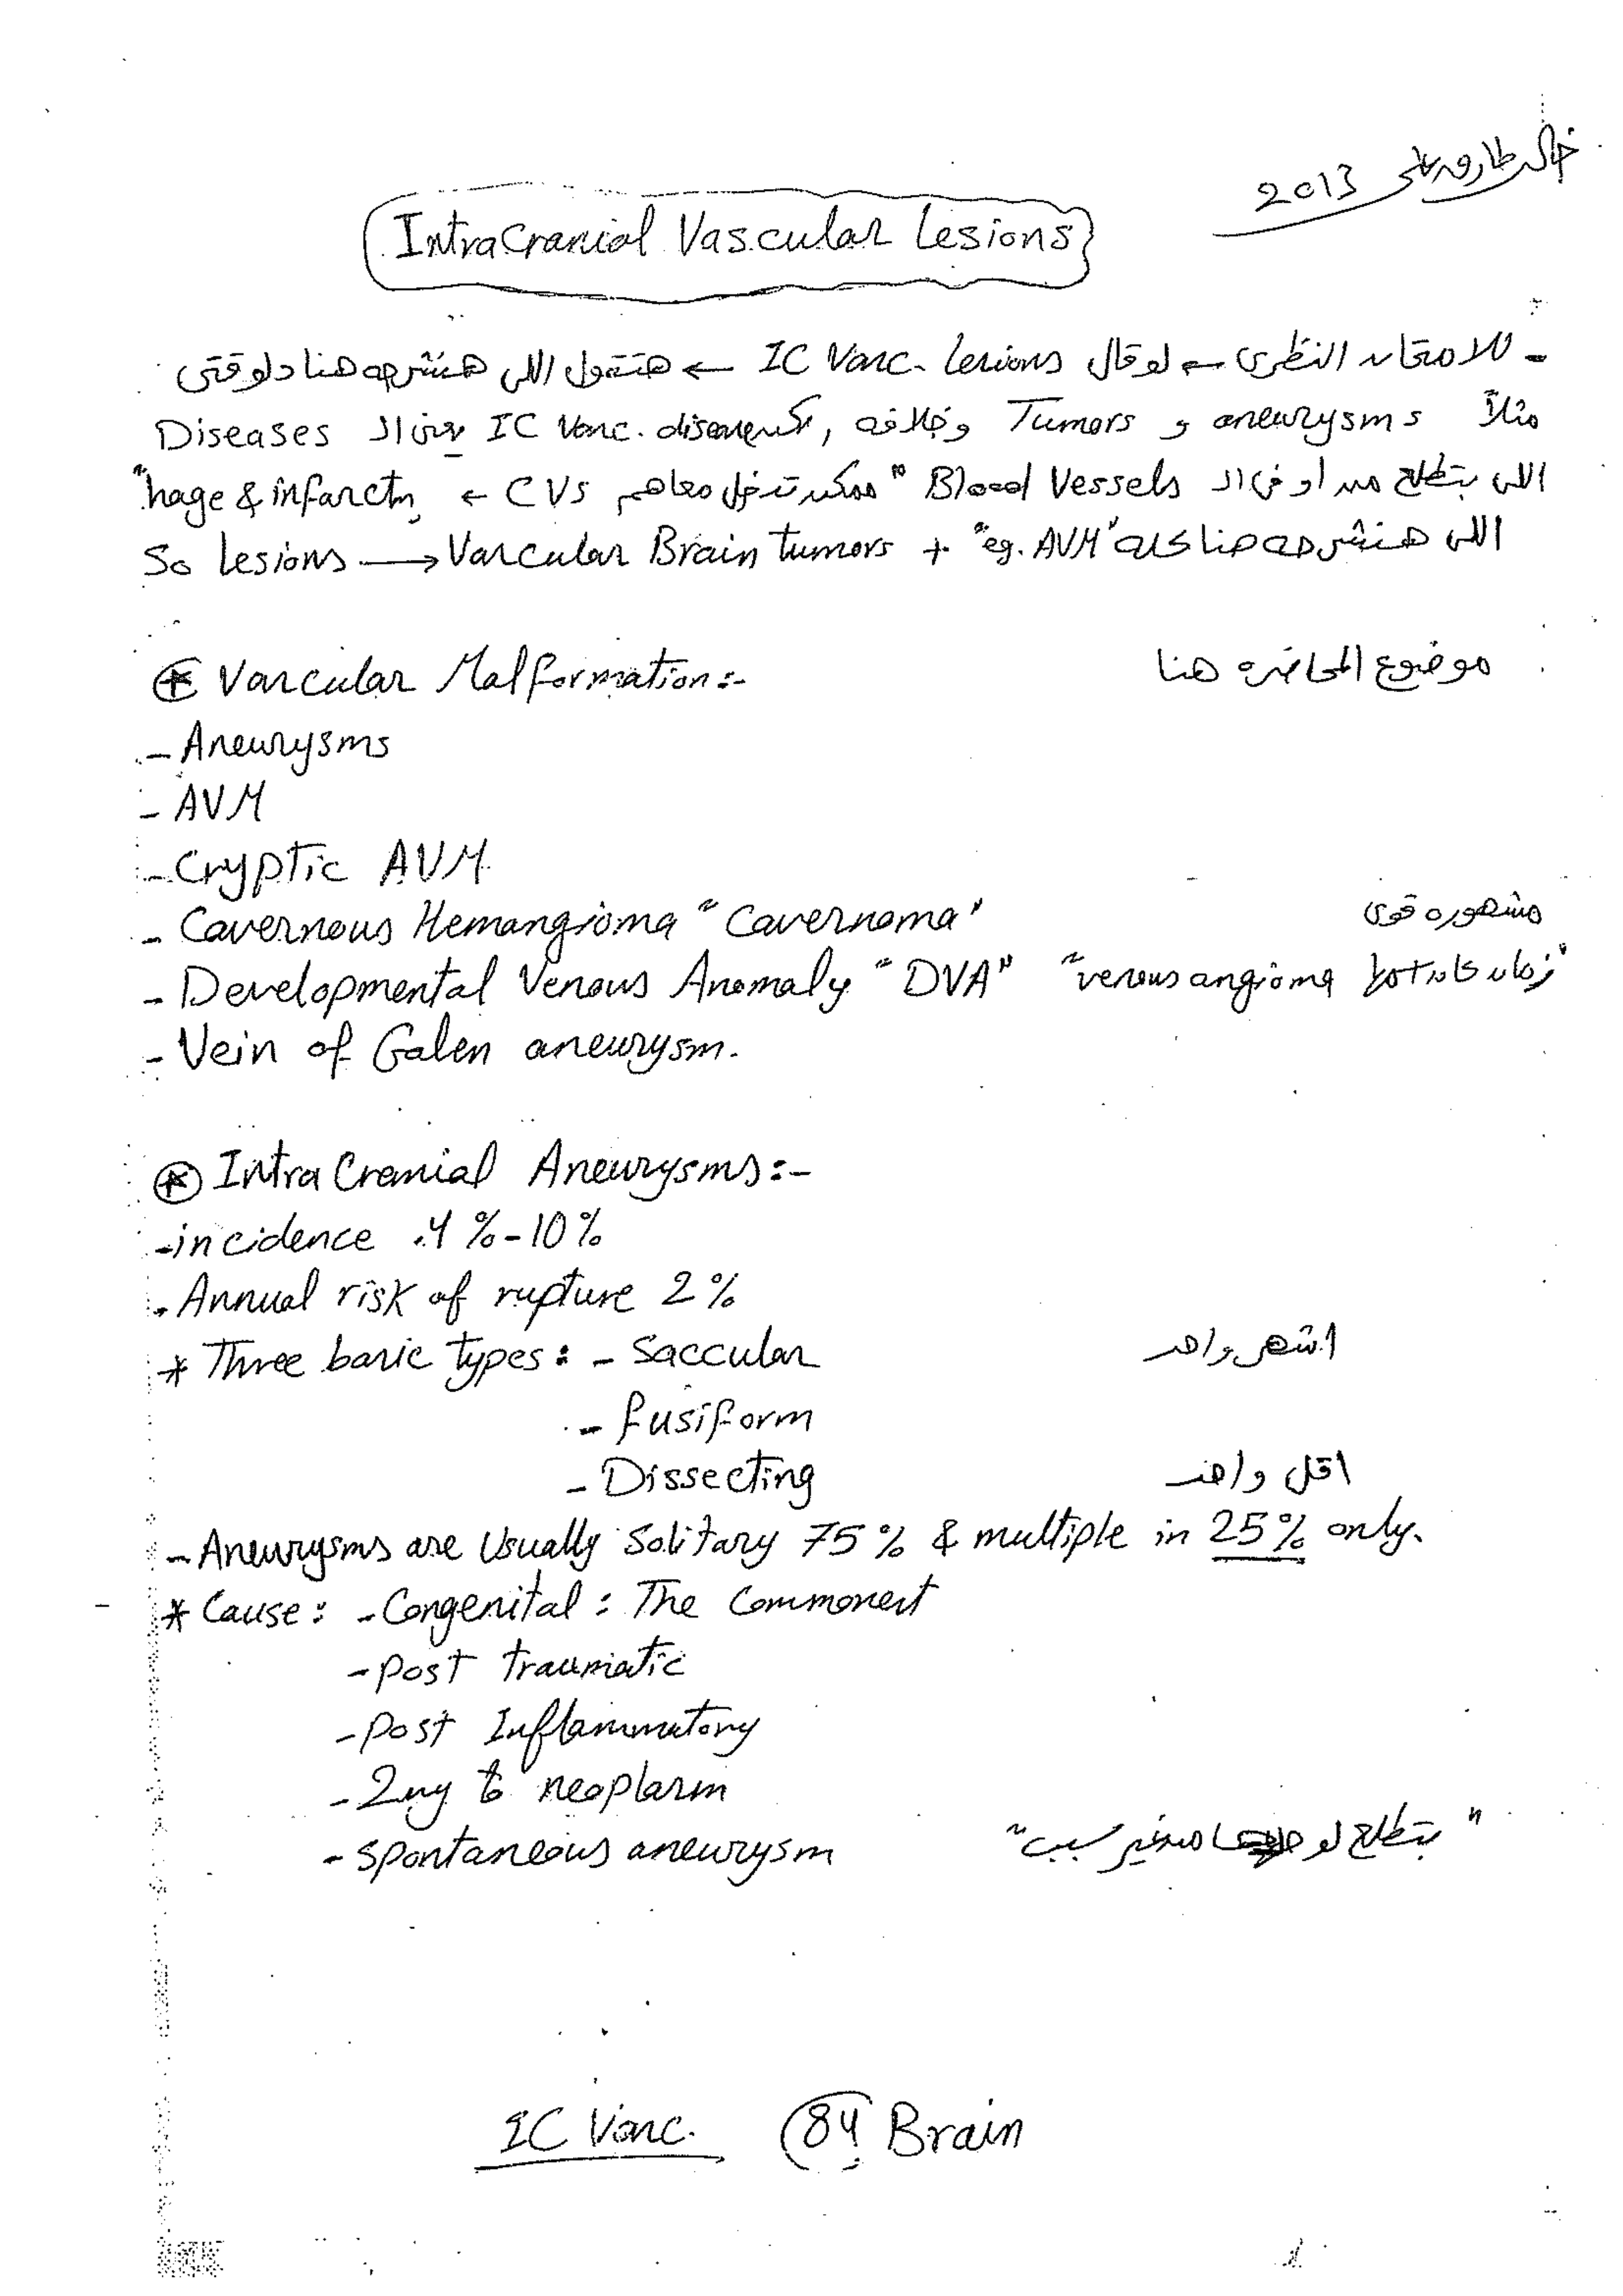 خالد طارق على 2013
IntraCranial Vascular Lesions
- للامتحان النظرى ← لو قال IC Vasc. lesions ← هتقول اللى هنشرحه هنا دلوقتى
مثلاً aneurysms و Tumors وخلافه, لكن IC Vasc. diseases يبقى الـ Diseases
اللى بتطلع من او فى الـ Blood Vessels "ممكن تدخل معاهم CVS ← hage & infarctn"
So lesions → Vascular Brain tumors + "eg. AVM" اللى هنشرحه هنا كله
موضوع المحاضره هنا
⊛ Vascular Malformation:-
- Aneurysms
- AVM
- Cryptic AVM
- Cavernous Hemangioma "Cavernoma" مشهوره قوى
- Developmental Venous Anomaly "DVA" "venous angioma زمان كان اسمها"
- Vein of Galen aneurysm.
⊛ IntraCranial Aneurysms:-
- incidence .4 % - 10 %
- Annual risk of rupture 2 %
* Three basic types: - Saccular اشهر واحد
- fusiform
- Dissecting اقل واحد
- Aneurysms are Usually Solitary 75 % & multiple in 25 % only.
* Cause: - Congenital: The Commonest
- post traumatic
- post Inflammatory
- 2ry to neoplasm
- spontaneous aneurysm "بتطلع لوحدها من غير سبب"
IC Vasc. 84 Brain